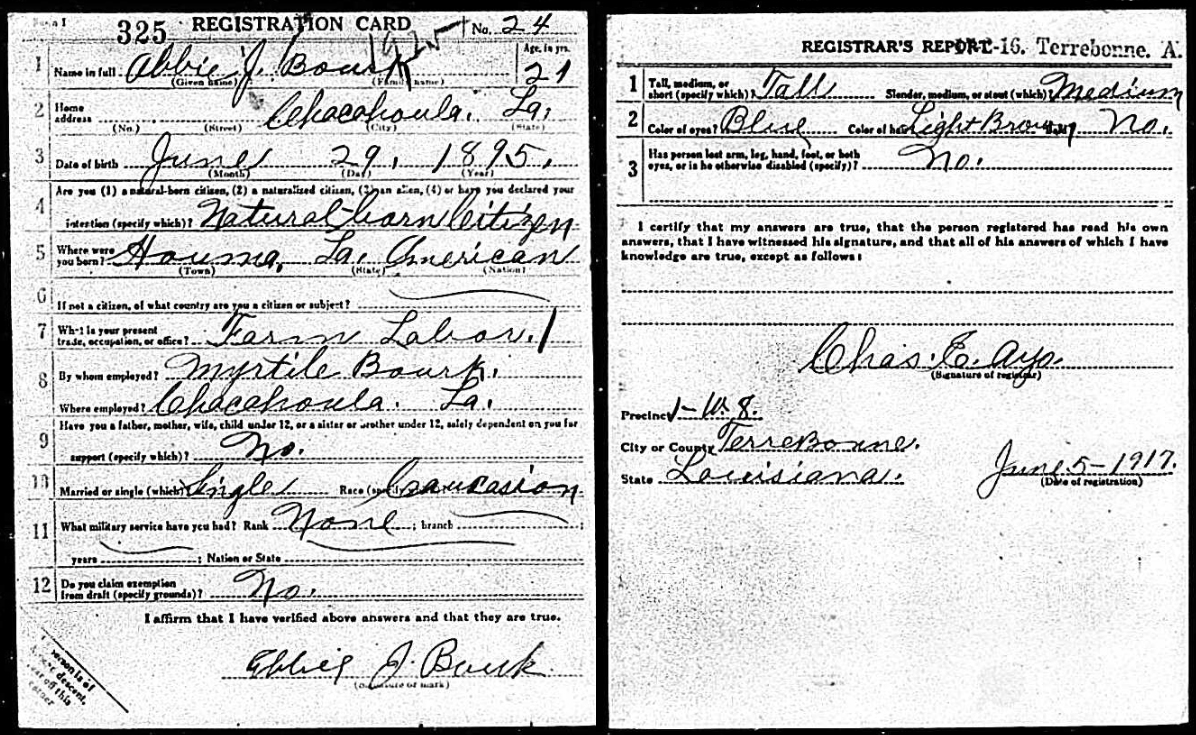 Form 1 325 REGISTRATION CARD No. 24
1 Name in full Abbie J. Bourk Age, in yrs. 21
(Given name) (Family name)
2 Home address Chacahoula, La.
(No.) (Street) (City) (State)
3 Date of birth June 29, 1895.
(Month) (Day) (Year)
4 Are you (1) a natural-born citizen, (2) a naturalized citizen, (3) an alien, (4) or have you declared your
intention (specify which)? Natural-born Citizen
5 Where were you born? Houma, La. American
(Town) (State) (Nation)
6 If not a citizen, of what country are you a citizen or subject?
7 What is your present trade, occupation, or office? Farm Labor.
8 By whom employed? Myrtile Bourk.
Where employed? Chacahoula. La.
9 Have you a father, mother, wife, child under 12, or a sister or brother under 12, solely dependent on you for
support (specify which)? No.
10 Married or single (which)? Single Race (specify Caucasion
11 What military service have you had? Rank None ; branch ;
years ; Nation or State
12 Do you claim exemption from draft (specify grounds)? No.
I affirm that I have verified above answers and that they are true.
Abbie J. Bourk
(Signature or mark)
person is of
descent,
off this
corner
REGISTRAR'S REPORT -16. Terrebonne. A.
1 Tall, medium, or short (specify which)? Tall Slender, medium, or stout (which)? Medium
2 Color of eyes? Blue Color of hair Light Brown No.
3 Has person lost arm, leg, hand, foot, or both eyes, or is he otherwise disabled (specify)? No.
I certify that my answers are true, that the person registered has read his own
answers, that I have witnessed his signature, and that all of his answers of which I have
knowledge are true, except as follows:
Chas. E. Ayo.
(Signature of registrar)
Precinct 1-W.8.
City or County TerreBonne.
State Louisiana. June 5-1917.
(Date of registration)